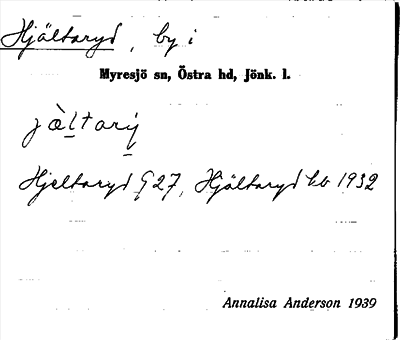 Hjältaryd, by i
Myresjö sn, Östra hd, Jönk. l.
jàltarý
Hjeltaryd G 27, Hjältaryd kb 1932
Annalisa Anderson 1939